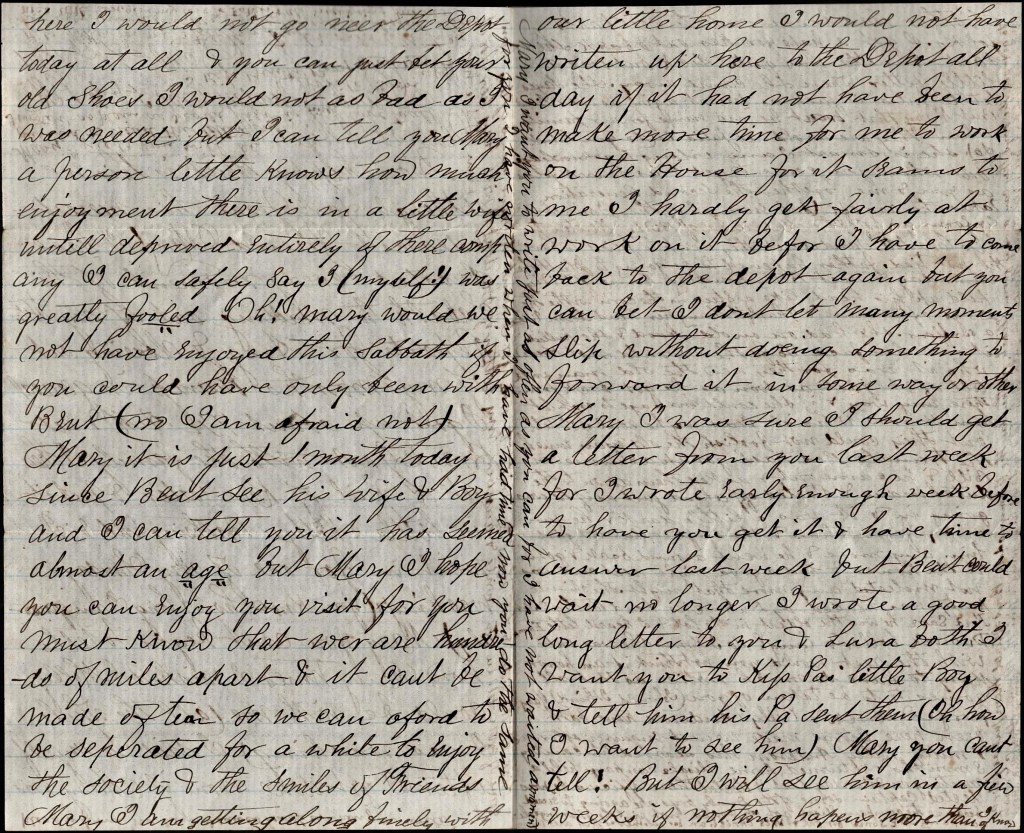 here I would not go neer the Depot
today at all & you can just bet your
old shoes I would not as bad as I
was needed but I can tell you Mary
a person little knows how much
enjoyment there is in a little wife
untill deprived entirely of there comp
any I can safely say I (myself!) was
greatly fooled Oh! mary would we
not have enjoyed this Sabbath if
you could have only been with
Beut (no I am afraid not)
Mary it is just 1 month today
since Beut see his wife & Boy
and I can tell you it has seemed
almost an age but Mary I hope
you can enjoy you visit for you
must know that wer are hunder
-ds of miles apart & it cant be
made often so we can aford to
be seperated for a while to enjoy
the society & the smiles of Friends
Mary I am getting along finely with
for you I have writen when I have had time now you do the same
Mary I want you to write just as often as you can for I have not waited
our little home I would not have
writen up here to the Depot all
day if it had not have been to
make more time for me to work
on the House for it seams to
me I hardly get fairly at
work on it befor I have to come
back to the depot again but you
can bet I dont let many moments
slip without doeing something to
forward it in some way or other
Mary I was sure I should get
a letter from you last week
for I wrote early enough week before
to have you get it & have time to
answer last week but Beut could
wait no longer I wrote a good
long letter to you & Lura both I
want you to Kiss Pas little Boy
& tell him his Pa sent them (Oh how
I want to see him) Mary you cant
tell! But I will see him in a few
weeks if nothing hapens more than I know of